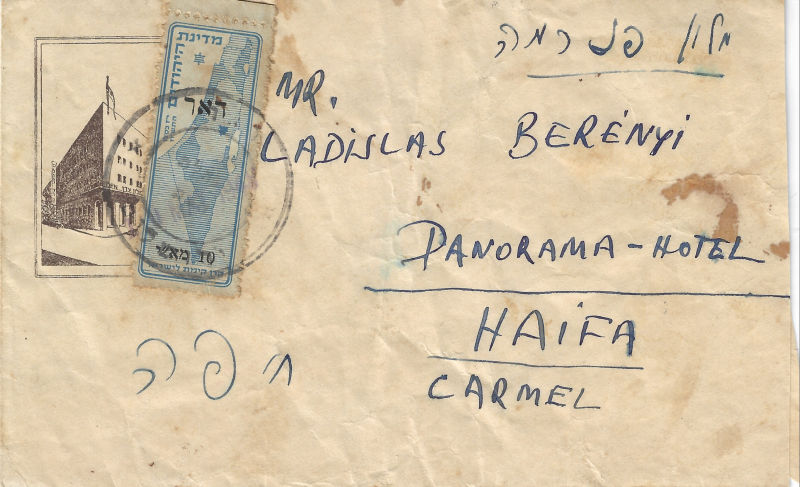 מלון פנורמה
מדינת היהודים
דאר
10 מאש
קרן קימת לישראל
MR.
LADISLAS BERÉNYI
PANORAMA-HOTEL
HAIFA
CARMEL
חיפה